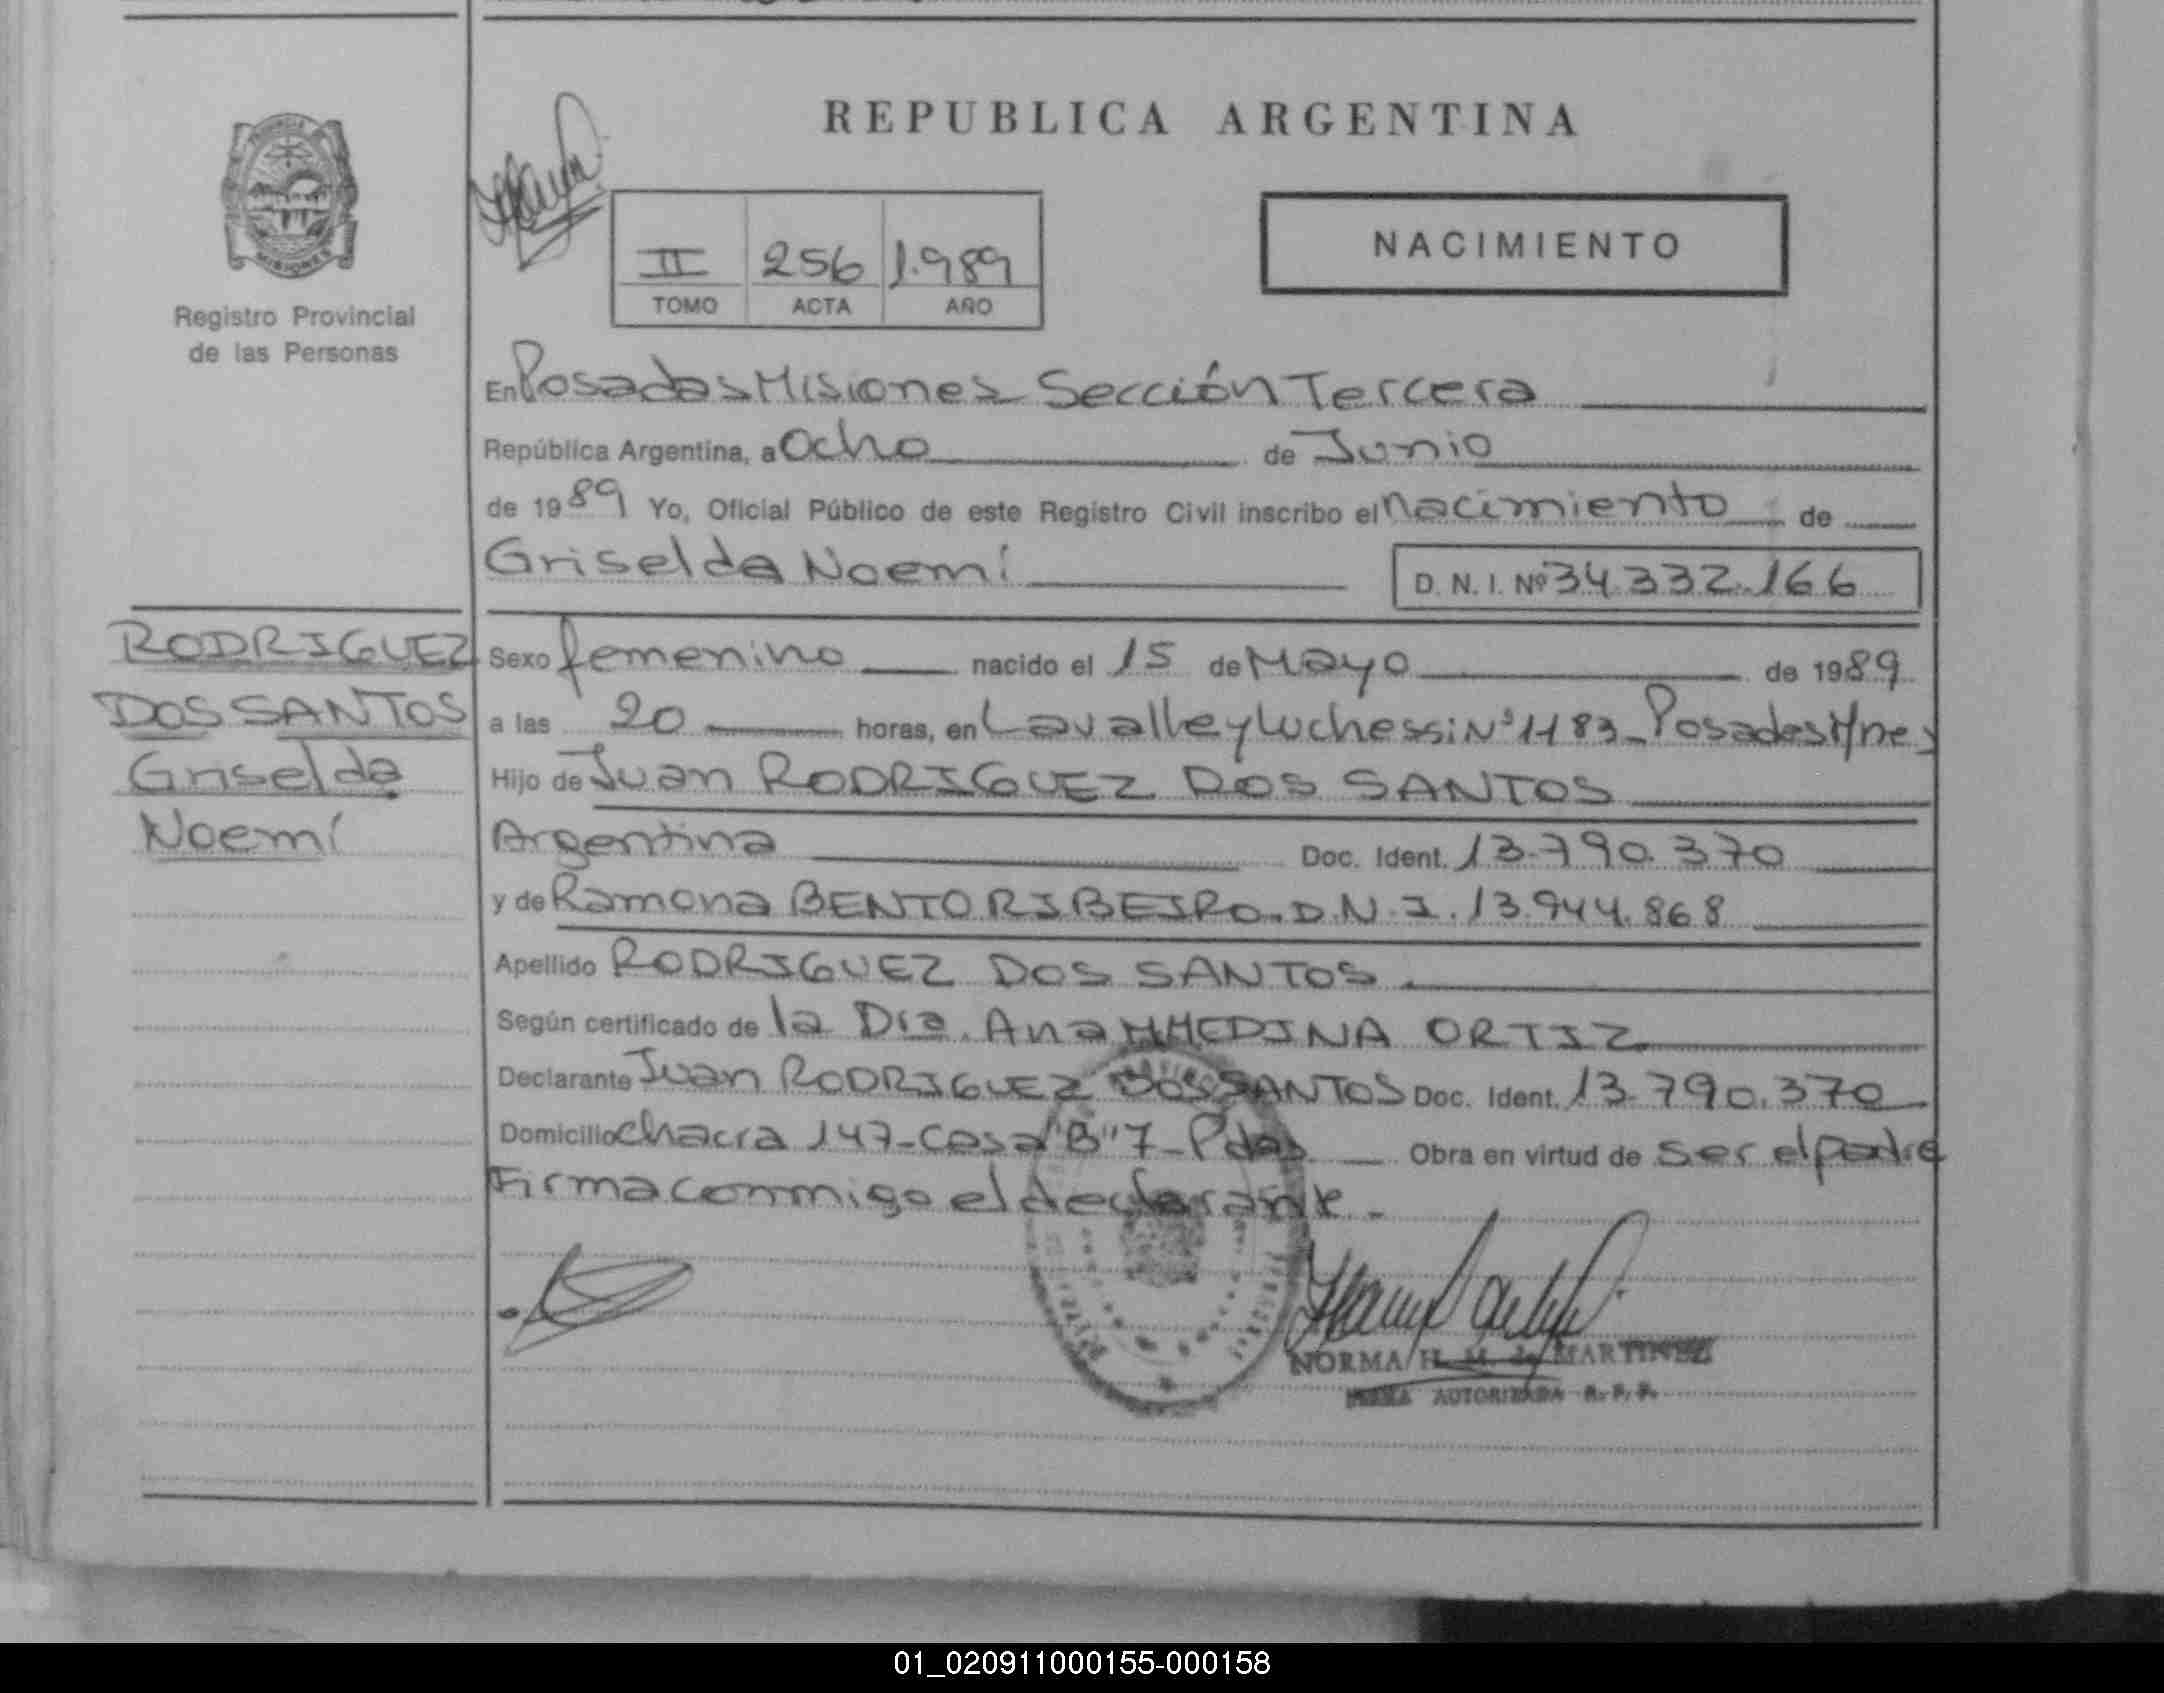 REPUBLICA ARGENTINA
PROVINCIA
MISIONES
Registro Provincial
de las Personas
II 256 1.989
TOMO ACTA AÑO
NACIMIENTO
En Posadas Misiones Sección Tercera
República Argentina, a Ocho de Junio
de 1989 Yo, Oficial Público de este Registro Civil inscribo el nacimiento de
Griselda Noemí
D. N. I. Nº 34.332.166
RODRIGUEZ
DOS SANTOS
Griselda
Noemí
Sexo femenino nacido el 15 de Mayo de 1989
a las 20 horas, en Lavalle y Luchessi Nº 1183 - Posadas Mnes
Hijo de Juan RODRIGUEZ DOS SANTOS
Argentina Doc. Ident. 13.790.370
y de Ramona BENTO RIBEIRO. D.N.I. 13.944.868
Apellido RODRIGUEZ DOS SANTOS.
Según certificado de la Dra. Ana M MEDINA ORTIZ
Declarante Juan RODRIGUEZ DOS SANTOS Doc. Ident. 13.790.370
Domicilio chacra 147 - Casa "B" 7 - Pdas Obra en virtud de ser el padre
Firma conmigo el declarante.-
NORMA H. M. de MARTINEZ
FIRMA AUTORIZADA R. P. P.
01_020911000155-000158